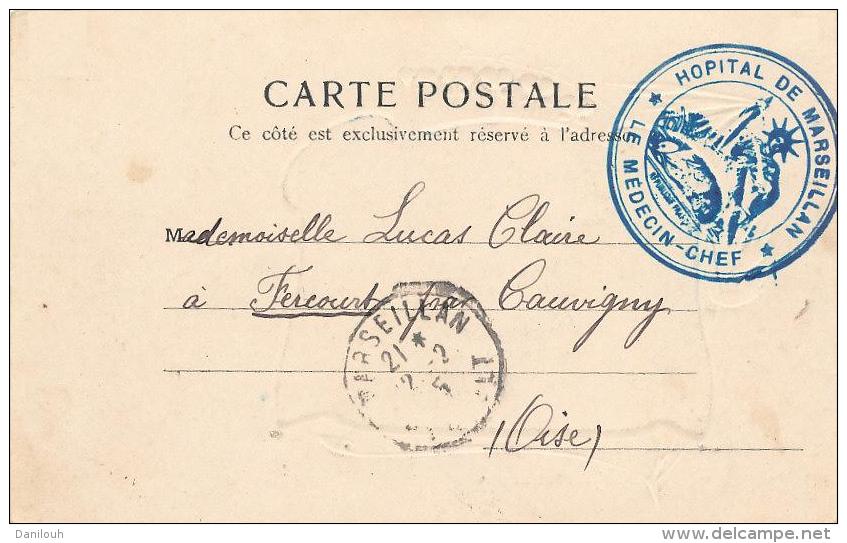 CARTE POSTALE
Ce côté est exclusivement réservé à l'adresse
HOPITAL DE MARSEILLAN
★ LE MÉDECIN-CHEF ★
Mademoiselle Lucas Claire
à Fercourt par Cauvigny
(Oise)
MARSEILLAN
21 *
Danilouh
www.delcampe.net